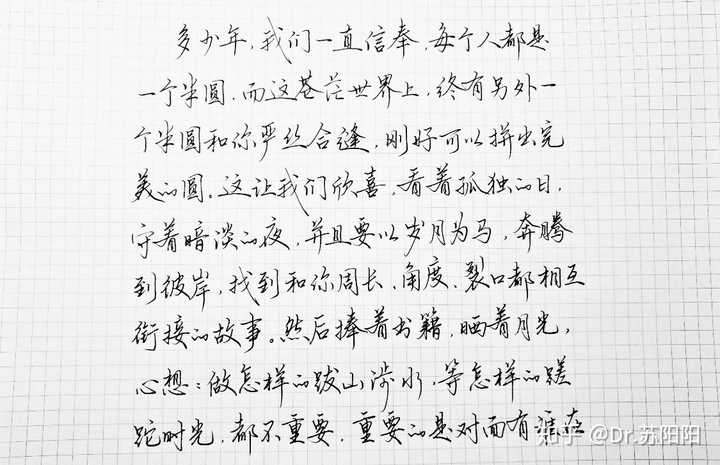 多少年,我们一直信奉,每个人都是
一个半圆,而这苍茫世界上,终有另外一
个半圆和你严丝合缝,刚好可以拼出完
美的圆。这让我们欣喜,看着孤独的日,
守着暗淡的夜,并且要以岁月为马,奔腾
到彼岸,找到和你周长、角度、裂口都相互
衔接的故事。然后捧着书籍,晒着月光,
心想:做怎样的跋山涉水,等怎样的蹉
跎时光,都不重要,重要的是对面有谁在
知乎 @Dr.苏阳阳